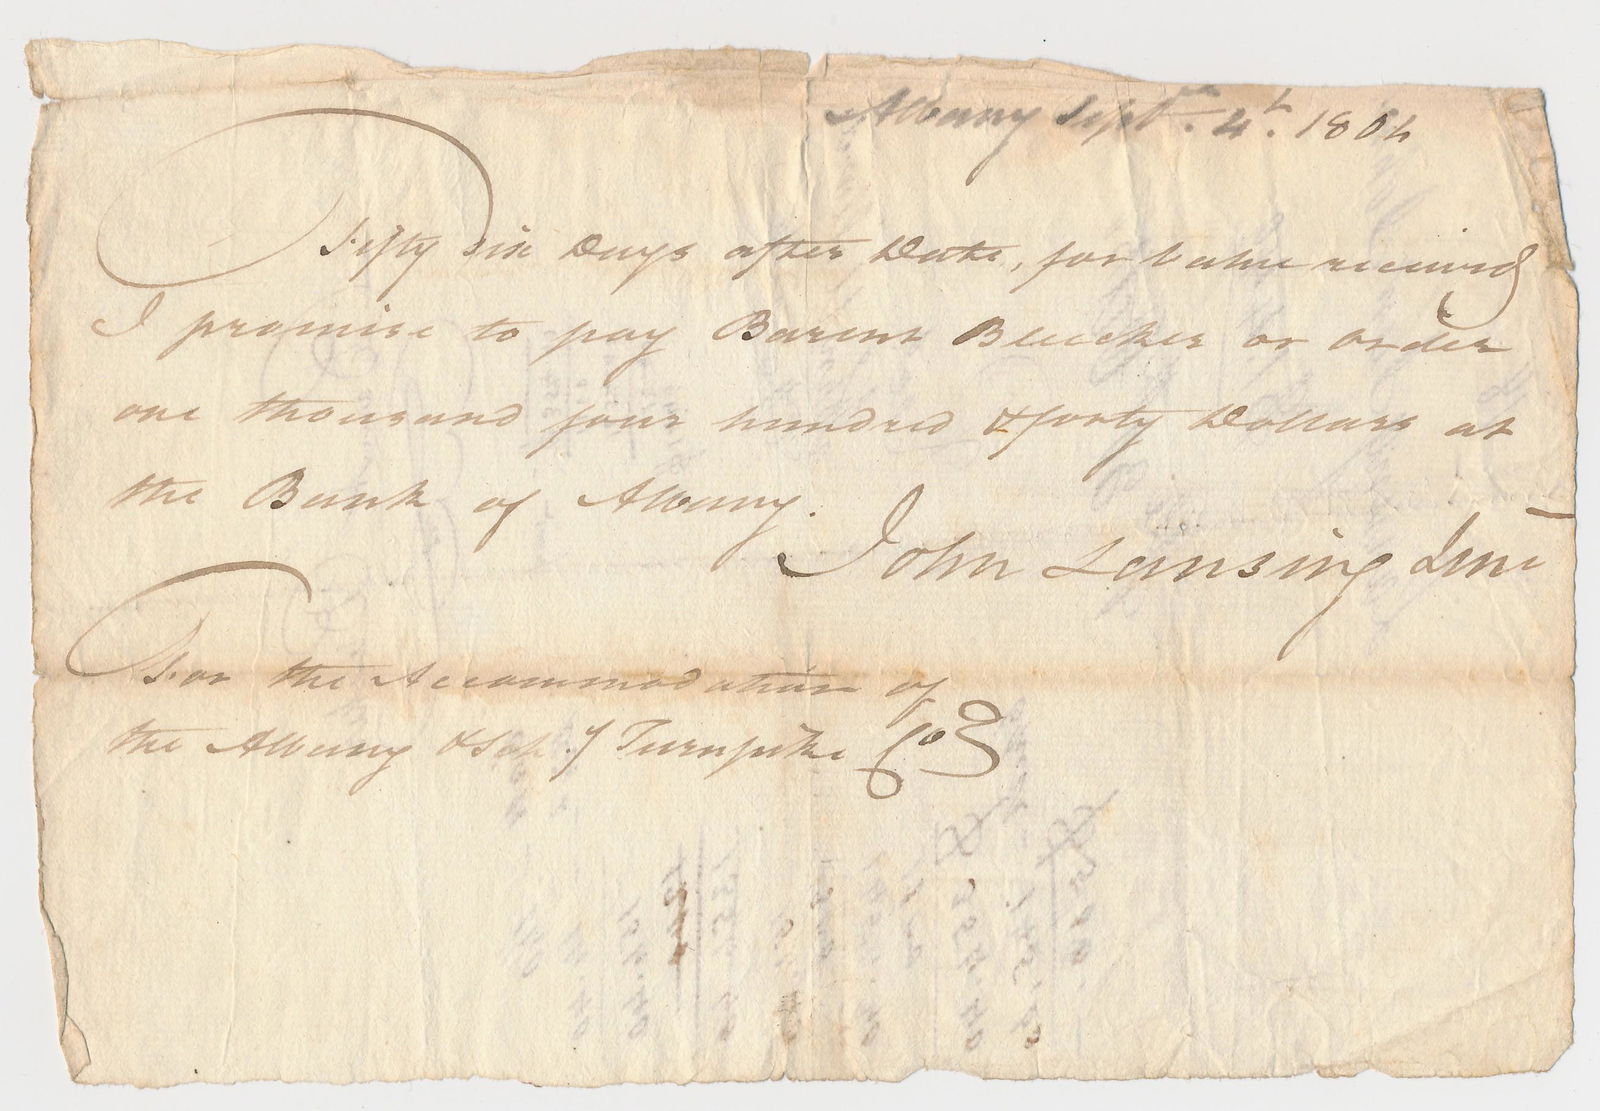 Albany Sept.r 4.th 1804
Fifty six Days after Date, for value received
I promise to pay Barent Bleecker or order
one thousand four hundred & forty Dollars at
the Bank of Albany.
John Lansing Junr
For the Accommodation of
the Albany & Sch.y Turnpike Co